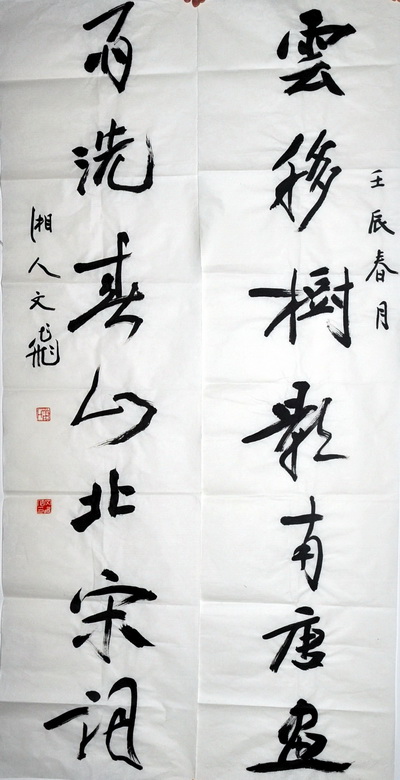 壬辰春月
雲移樹影南唐畫
雨洗春山北宋詞
湘人文飛